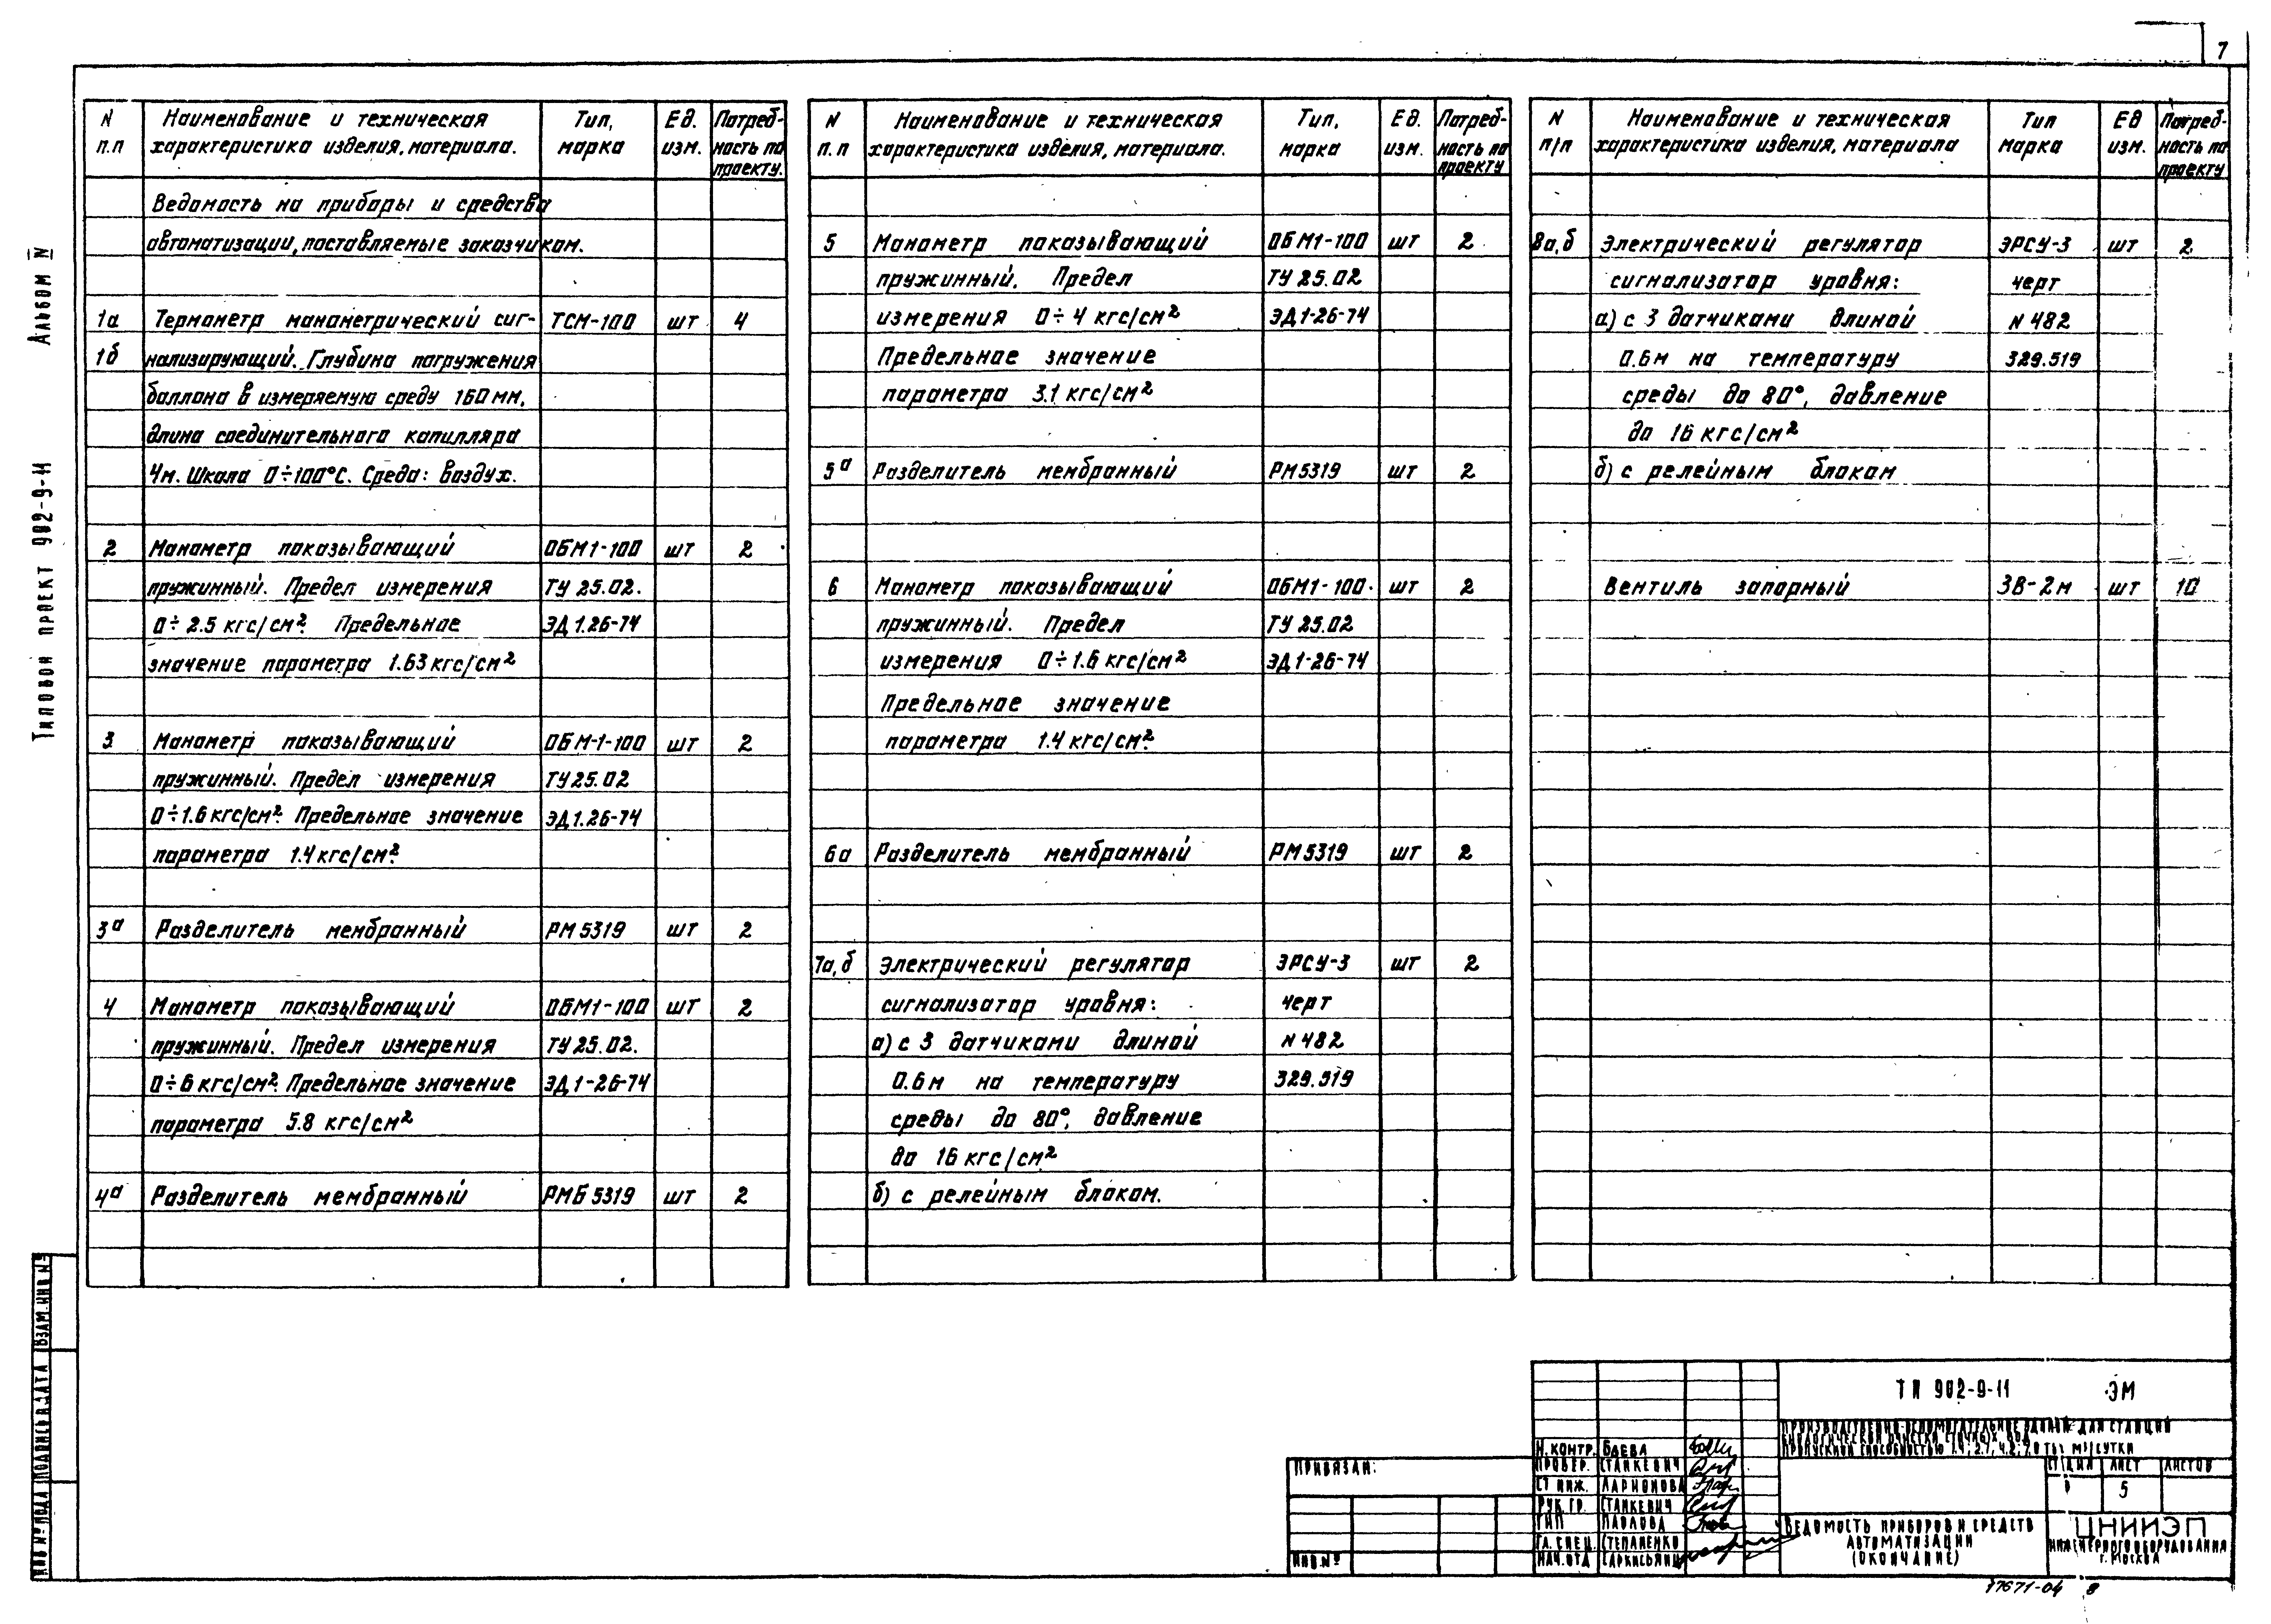 7
Альбом IV
Типовой проект 902-9-11
N п.п
Наименование и техническая характеристика изделия, материала.
Тип, марка
Ед. изм.
Потребность по проекту.
Ведомость на приборы и средства
автоматизации, поставляемые заказчиком.
1а Термометр манометрический сиг- ТСМ-100 шт 4
1б нализирующий. Глубина погружения
баллона в измеряемую среду 160 мм,
длина соединительного капилляра
4м. Шкала 0÷100°С. Среда: Воздух.
2 Манометр показывающий ОБМ1-100 шт 2
пружинный. Предел измерения ТУ 25.02.
0÷ 2.5 кгс/см². Предельное ЭД 1.26-74
значение параметра 1.63 кгс/см²
3 Манометр показывающий ОБМ-1-100 шт 2
пружинный. Предел измерения ТУ 25.02
0÷1.6 кгс/см². Предельное значение ЭД 1.26-74
параметра 1.4 кгс/см².
3а Разделитель мембранный РМ 5319 шт 2
4 Манометр показывающий ОБМ1-100 шт 2
пружинный. Предел измерения ТУ 25.02.
0÷6 кгс/см². Предельное значение ЭД 1-26-74
параметра 5.8 кгс/см²
4а Разделитель мембранный РМБ 5319 шт 2
N п.п
Наименование и техническая характеристика изделия, материала.
Тип, марка
Ед. изм.
Потребность по проекту
5 Манометр показывающий ОБМ1-100 шт 2
пружинный. Предел ТУ 25.02
измерения 0÷4 кгс/см² ЭД 1-26-74
Предельное значение
параметра 3.1 кгс/см²
5а Разделитель мембранный РМ 5319 шт 2
6 Манометр показывающий ОБМ1-100 шт 2
пружинный. Предел ТУ 25.02
измерения 0÷1.6 кгс/см² ЭД 1-26-74
Предельное значение
параметра 1.4 кгс/см².
6а Разделитель мембранный РМ 5319 шт 2
7а,б Электрический регулятор ЭРСУ-3 шт 2
сигнализатор уровня: черт
а) с 3 датчиками длиной N 482
0.6м на температуру 329.519
среды до 80°, давление
до 16 кгс/см²
б) с релейным блоком.
N п/п
Наименование и техническая характеристика изделия, материала
Тип марка
Ед изм.
Потребность по проекту
8а,б Электрический регулятор ЭРСУ-3 шт 2
сигнализатор уровня: черт
а) с 3 датчиками длиной N 482
0.6м на температуру 329.519
среды до 80°, давление
до 16 кгс/см²
б) с релейным блоком
Вентиль запорный ЗВ-2м шт 10
Инв № подл Подпись и дата Взам. инв №
Привязан:
Инв №
Н. контр. Баева
Провер. Станкевич
Ст инж. Ларионова
Рук. гр. Станкевич
ГИП Павлова
Гл. спец. Степаненко
Нач. отд Саркисьянц
ТП 902-9-11 ЭМ
Производственно-вспомогательные здания для станций
биологической очистки сточных вод
пропускной способностью 1.4; 2.7; 4.2; 7.0 тыс м³/сутки
Стадия Лист Листов
Р 5
Ведомость приборов и средств
автоматизации
(окончание)
ЦНИИЭП
инженерного оборудования
г. Москва
17671-04 8